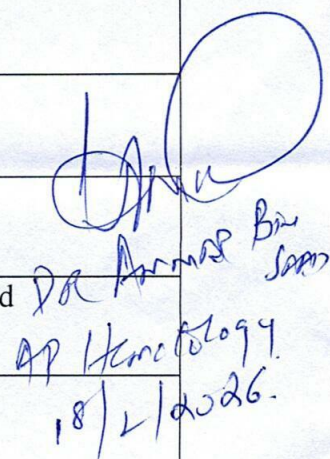 d
DR Ammar Bin
Saad
AP Hematology
18/2/2026.